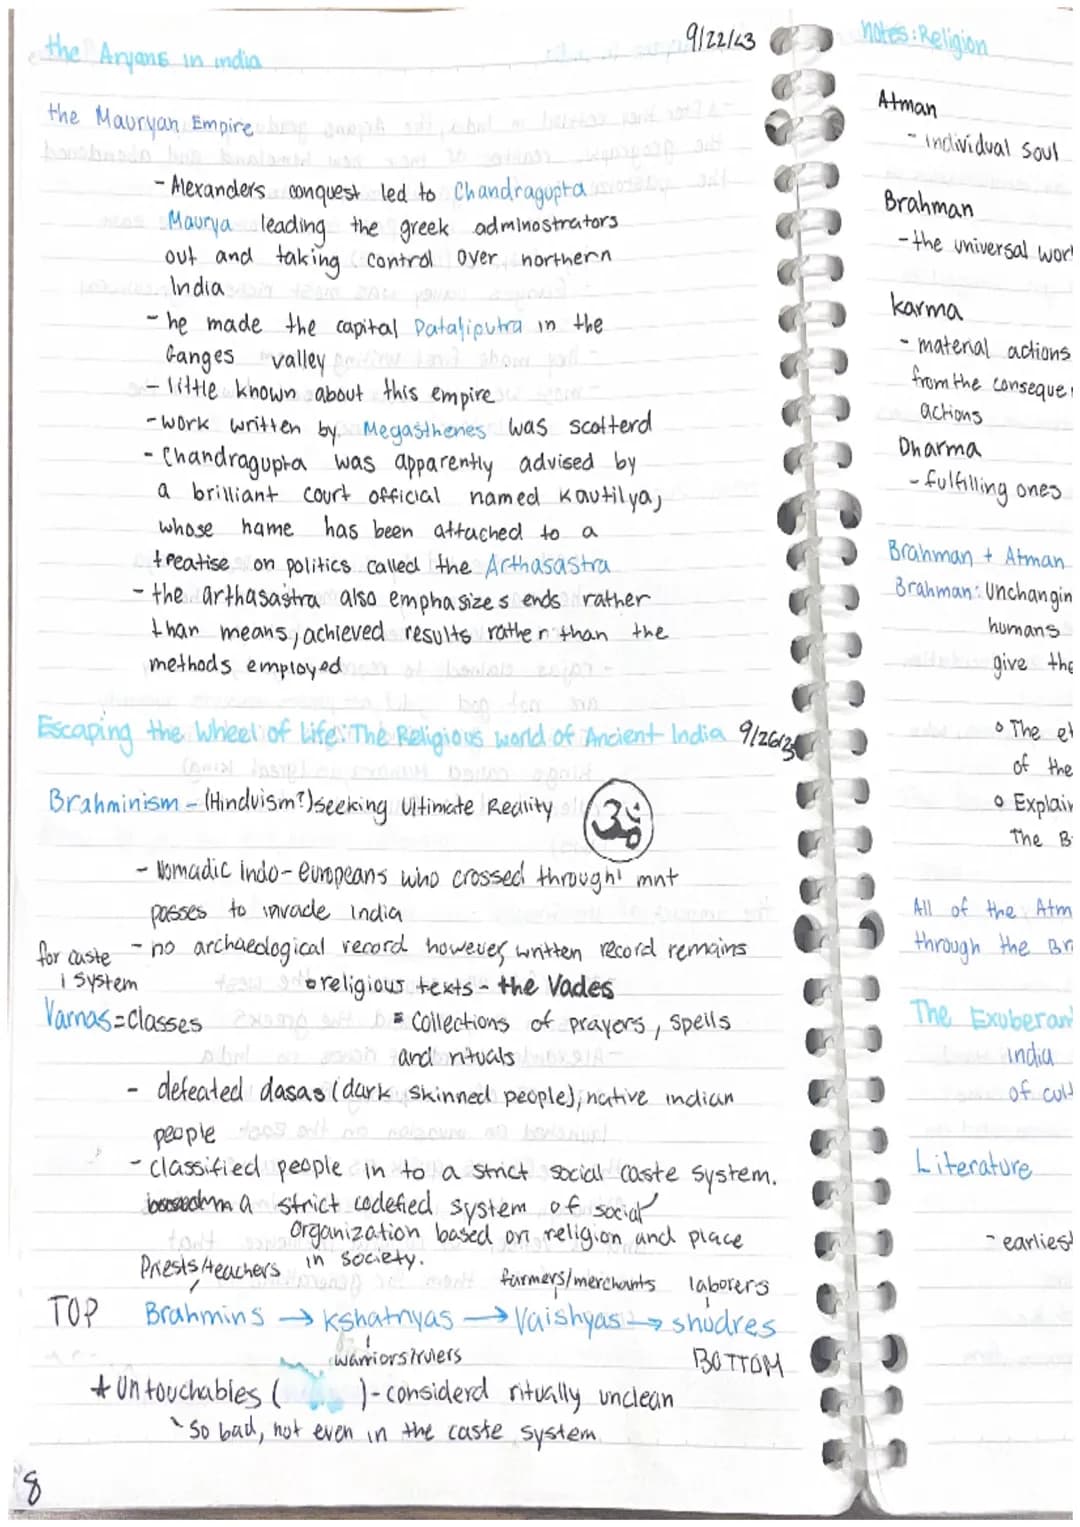 the Aryans in india
9/22/23
the Mauryan Empire
- Alexanders conquest led to Chandragupta
Maurya leading the greek adminostrators
out and taking control over northern
India
- he made the capital Pataliputra in the
Ganges valley
- little known about this empire
- work written by Megasthenes was scotterd
- Chandragupta was apparently advised by
a brilliant court official named Kautilya,
whose name has been attached to a
treatise on politics called the Arthasastra
- the arthasastra also emphasizes ends rather
than means, achieved results rather than the
methods employed
Escaping the Wheel of Life: The Religious world of Ancient India 9/26/23
Brahminism - (Hinduism?) seeking Ultimate Reality
ॐ
- Nomadic indo-europeans who crossed through mnt
passes to invade india
- no archaeological record however, written record remains
for caste
system
religious texts - the Vades
Varnas = classes
= collections of prayers, spells
and rituals
- defeated dasas (dark skinned people), native indian
people
- classified people in to a strict social caste system.
a strict codefied system of social
organization based on religion and place
in society.
Priests/teachers
farmers/merchants laborers
TOP Brahmins → Kshatriyas → Vaishyas → shudres
warriors/rulers
BOTTOM
* Untouchables ( ) - considerd ritually unclean
so bad, not even in the caste system
8
notes: Religion
Atman
- individual soul
Brahman
- the universal
karma
- material actions
from the
actions
Dharma
- fulfilling ones
Brahman + Atman
Brahman: Unchangin
humans
give the
The
of the
Explain
The
All of the Atm
through the Br
The Exuberan
india
of cult
Literature
- earliest